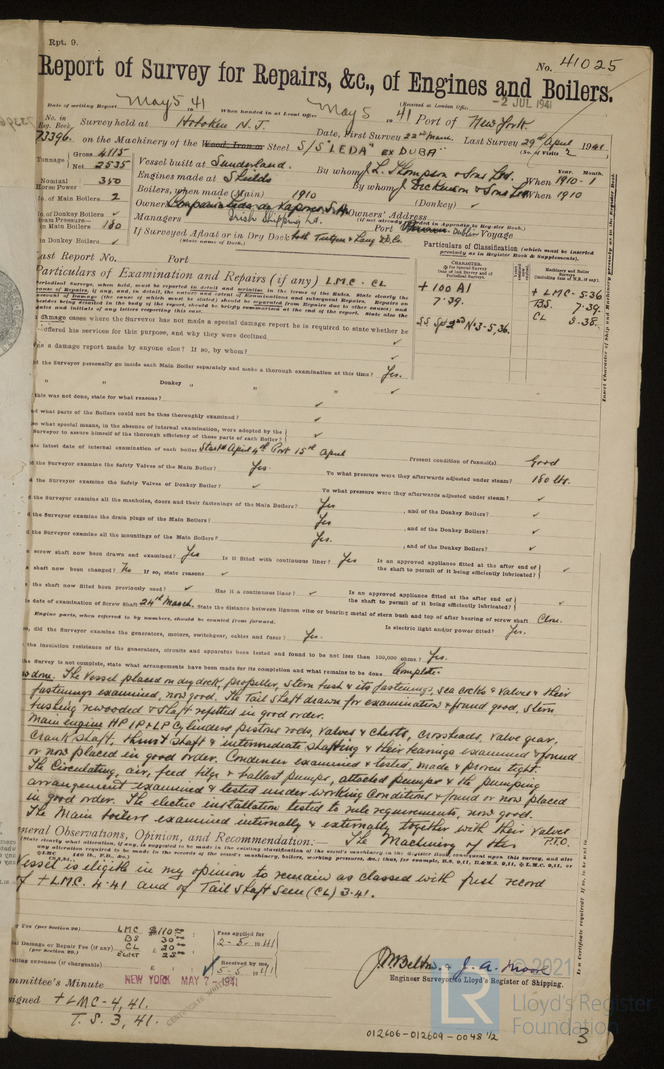 Rpt. 9.
No. 41025
Report of Survey for Repairs, &c., of Engines and Boilers.
-2 JUL 1941
Date of writing Report May 5 1941 When handed in at Local Office May 5 1941 Port of New York
No. in Reg. Book 73396. Survey held at Hoboken N.J. Date, First Survey 22nd March. Last Survey 29th April 1941
(No. of Visits 2)
on the Machinery of the Wood, Iron or Steel S/S "LEDA" ex DUBA"
Tonnage Gross 4115
Net 2535
Vessel built at Sunderland. By whom J. L. Thompson & Sons Ltd. When 1910 - 1
Year. Month.
Nominal Horse Power 350
Engines made at S Shields By whom J Dickinson & Sons Ltd When 1910
No. of Main Boilers 2
Boilers, when made (Main) 1910 (Donkey) ✓
No. of Donkey Boilers ✓
Owners Owners' Address
(if not already recorded in Appendix to Register Book.)
Steam Pressure in Main Boilers 180
Managers Irish Shipping Ld. Port Dublin Voyage
in Donkey Boilers ✓
If Surveyed Afloat or in Dry Dock both Tietjen & Lang DD Co.
(State name of Dock.)
Particulars of Classification (which must be inserted precisely as in Register Book & Supplements).
Last Report No. Port
Particulars of Examination and Repairs (if any) LMC. CL
CHARACTER.
+ 100 A1
7.39.
SS Sp 2nd No 3-5,36.
Machinery and Boiler Surveys
+ LMC. 5.36
BS. 7.39.
CL 3.38.
damage cases where the Surveyor has not made a special damage report he is required to state whether he
offered his services for this purpose, and why they were declined ✓
Was a damage report made by anyone else? If so, by whom? ✓
Did the Surveyor personally go inside each Main Boiler separately and make a thorough examination at this time? Yes.
" " Donkey " " " ✓
If this was not done, state for what reasons? ✓
And what parts of the Boilers could not be thus thoroughly examined? ✓
Upon what special means, in the absence of internal examination, were adopted by the
Surveyor to assure himself of the thorough efficiency of those parts of each Boiler? ✓
State latest date of internal examination of each boiler Starbd April 4th Port 15th April Present condition of funnel(s) Good
Did the Surveyor examine the Safety Valves of the Main Boiler? Yes. To what pressure were they afterwards adjusted under steam? 180 lbs.
Did the Surveyor examine the Safety Valves of Donkey Boiler? ✓ To what pressure were they afterwards adjusted under steam? ✓
Did the Surveyor examine all the manholes, doors and their fastenings of the Main Boilers? Yes , and of the Donkey Boilers? ✓
Did the Surveyor examine the drain plugs of the Main Boilers? Yes , and of the Donkey Boilers? ✓
Did the Surveyor examine all the mountings of the Main Boilers? Yes. , and of the Donkey Boilers? ✓
screw shaft now been drawn and examined? Yes Is it fitted with continuous liner? Yes Is an approved appliance fitted at the after end of
the shaft to permit of it being efficiently lubricated? ✓
shaft now been changed? No If so, state reasons ✓
the shaft now fitted been previously used? ✓ Has it a continuous liner? ✓ Is an approved appliance fitted at the after end of
the shaft to permit of it being efficiently lubricated? ✓
date of examination of Screw Shaft 24th March. State the distance between lignum vitæ or bearing metal of stern bush and top of after bearing of screw shaft Close.
Engine parts, when referred to by numbers, should be counted from forward.
Is electric light and/or power fitted? Yes.
so, did the Surveyor examine the generators, motors, switchgear, cables and fuses? Yes.
the insulation resistance of the generators, circuits and apparatus been tested and found to be not less than 100,000 ohms? Yes.
the Survey is not complete, state what arrangements have been made for its completion and what remains to be done Complete
is done. The Vessel placed on dry dock, propeller, stern bush & its fastenings, sea cocks & valves & their
fastenings examined, now good. The Tail shaft drawn for examination & found good, stern
bushing rewooded & shaft refitted in good order.
Main engine HP IP & LP Cylinders pistons rods, valves & chests, crossheads, valve gear,
crank shaft, thrust shaft & intermediate shafting & their bearings examined & found
or now placed in good order. Condenser examined & tested, made & proven tight.
The Circulating, air, feed bilge & ballast pumps, attached pumps & the pumping
arrangement examined & tested under working conditions & found or now placed
in good order. The electric installation tested to rule requirements, now good.
The Main boilers examined internally & externally together with their valves
P.T.O.
General Observations, Opinion, and Recommendation:— The Machinery of this
Vessel is eligible in my opinion to remain as classed with fresh record
of + LMC. 4.41 and of Tail Shaft Seen (CL) 3.41.
Survey Fee (per Section 29) LMC $110.00
BS 30
CL 20
Elect 25
Fees applied for
2-5-1941
Special Damage or Repair Fee (if any) (per Section 29.)
Received by me,
5-5-1941
Travelling expenses (if chargeable)
J. A. Moore
Engineer Surveyor to Lloyd's Register of Shipping.
Committee's Minute NEW YORK MAY 7 - 1941
Assigned + LMC - 4, 41.
T.S. 3, 41.
CERTIFICATE WRITTEN
© 2021
LR
Lloyd's Register
Foundation
012606-012609-0048 1/2
3